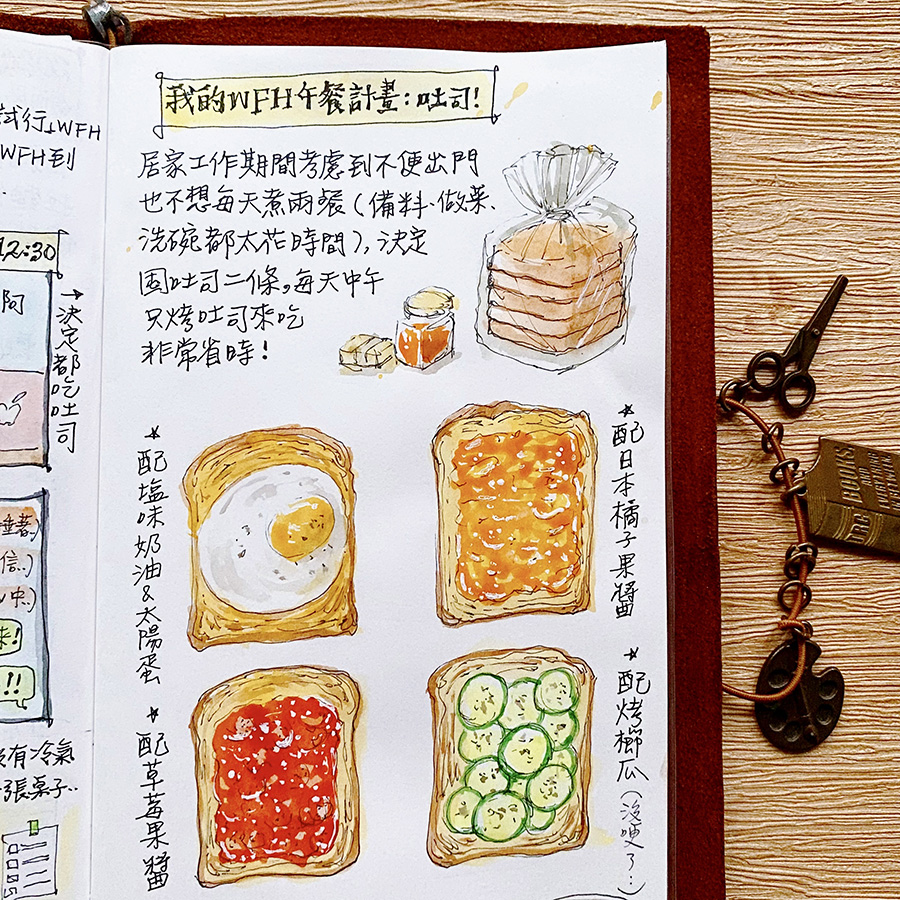 試行WFH
WFH到
12:30
阿
→決定都吃吐司
信..)
中..)
!!
有冷氣
張桌子..
我的WFH午餐計畫:吐司!
居家工作期間考慮到不便出門
也不想每天煮兩餐(備料、做菜、
洗碗都太花時間),決定
囤吐司二條。每天中午
只烤吐司來吃
非常省時!
配塩味奶油&太陽蛋
配日本橘子果醬
配草莓果醬
配烤櫛瓜(沒哽了…)
BOOKS